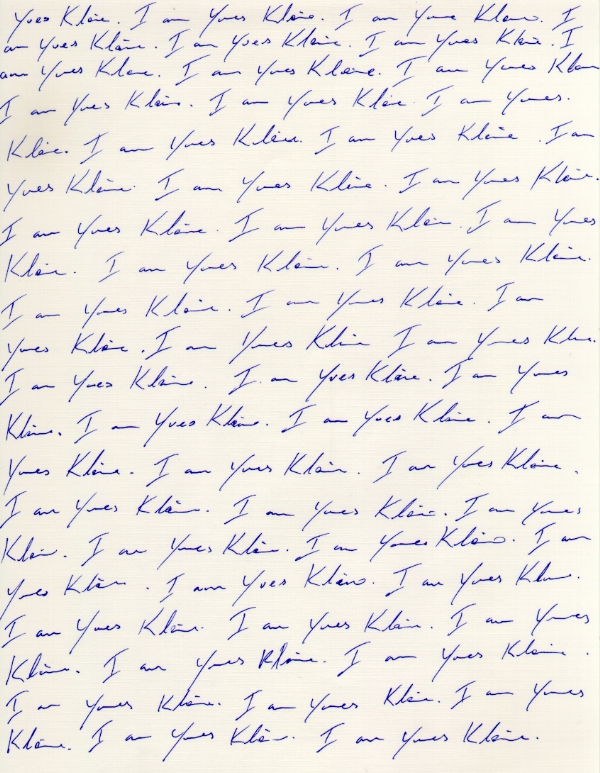 Yves Klein. I am Yves Klein. I am Yves Klein. I
am Yves Klein. I am Yves Klein. I am Yves Klein. I
am Yves Klein. I am Yves Klein. I am Yves Klein
I am Yves Klein. I am Yves Klein. I am Yves.
Klein. I am Yves Klein. I am Yves Klein. I am
Yves Klein. I am Yves Klein. I am Yves Klein.
I am Yves Klein. I am Yves Klein. I am Yves
Klein. I am Yves Klein. I am Yves Klein.
I am Yves Klein. I am Yves Klein. I am
Yves Klein. I am Yves Klein I am Yves Klein.
I am Yves Klein. I am Yves Klein. I am Yves
Klein. I am Yves Klein. I am Yves Klein. I am
Yves Klein. I am Yves Klein. I am Yves Klein.
I am Yves Klein. I am Yves Klein. I am Yves
Klein. I am Yves Klein. I am Yves Klein. I am
Yves Klein. I am Yves Klein. I am Yves Klein.
I am Yves Klein. I am Yves Klein. I am Yves
Klein. I am Yves Klein. I am Yves Klein.
I am Yves Klein. I am Yves Klein. I am Yves
Klein. I am Yves Klein. I am Yves Klein.